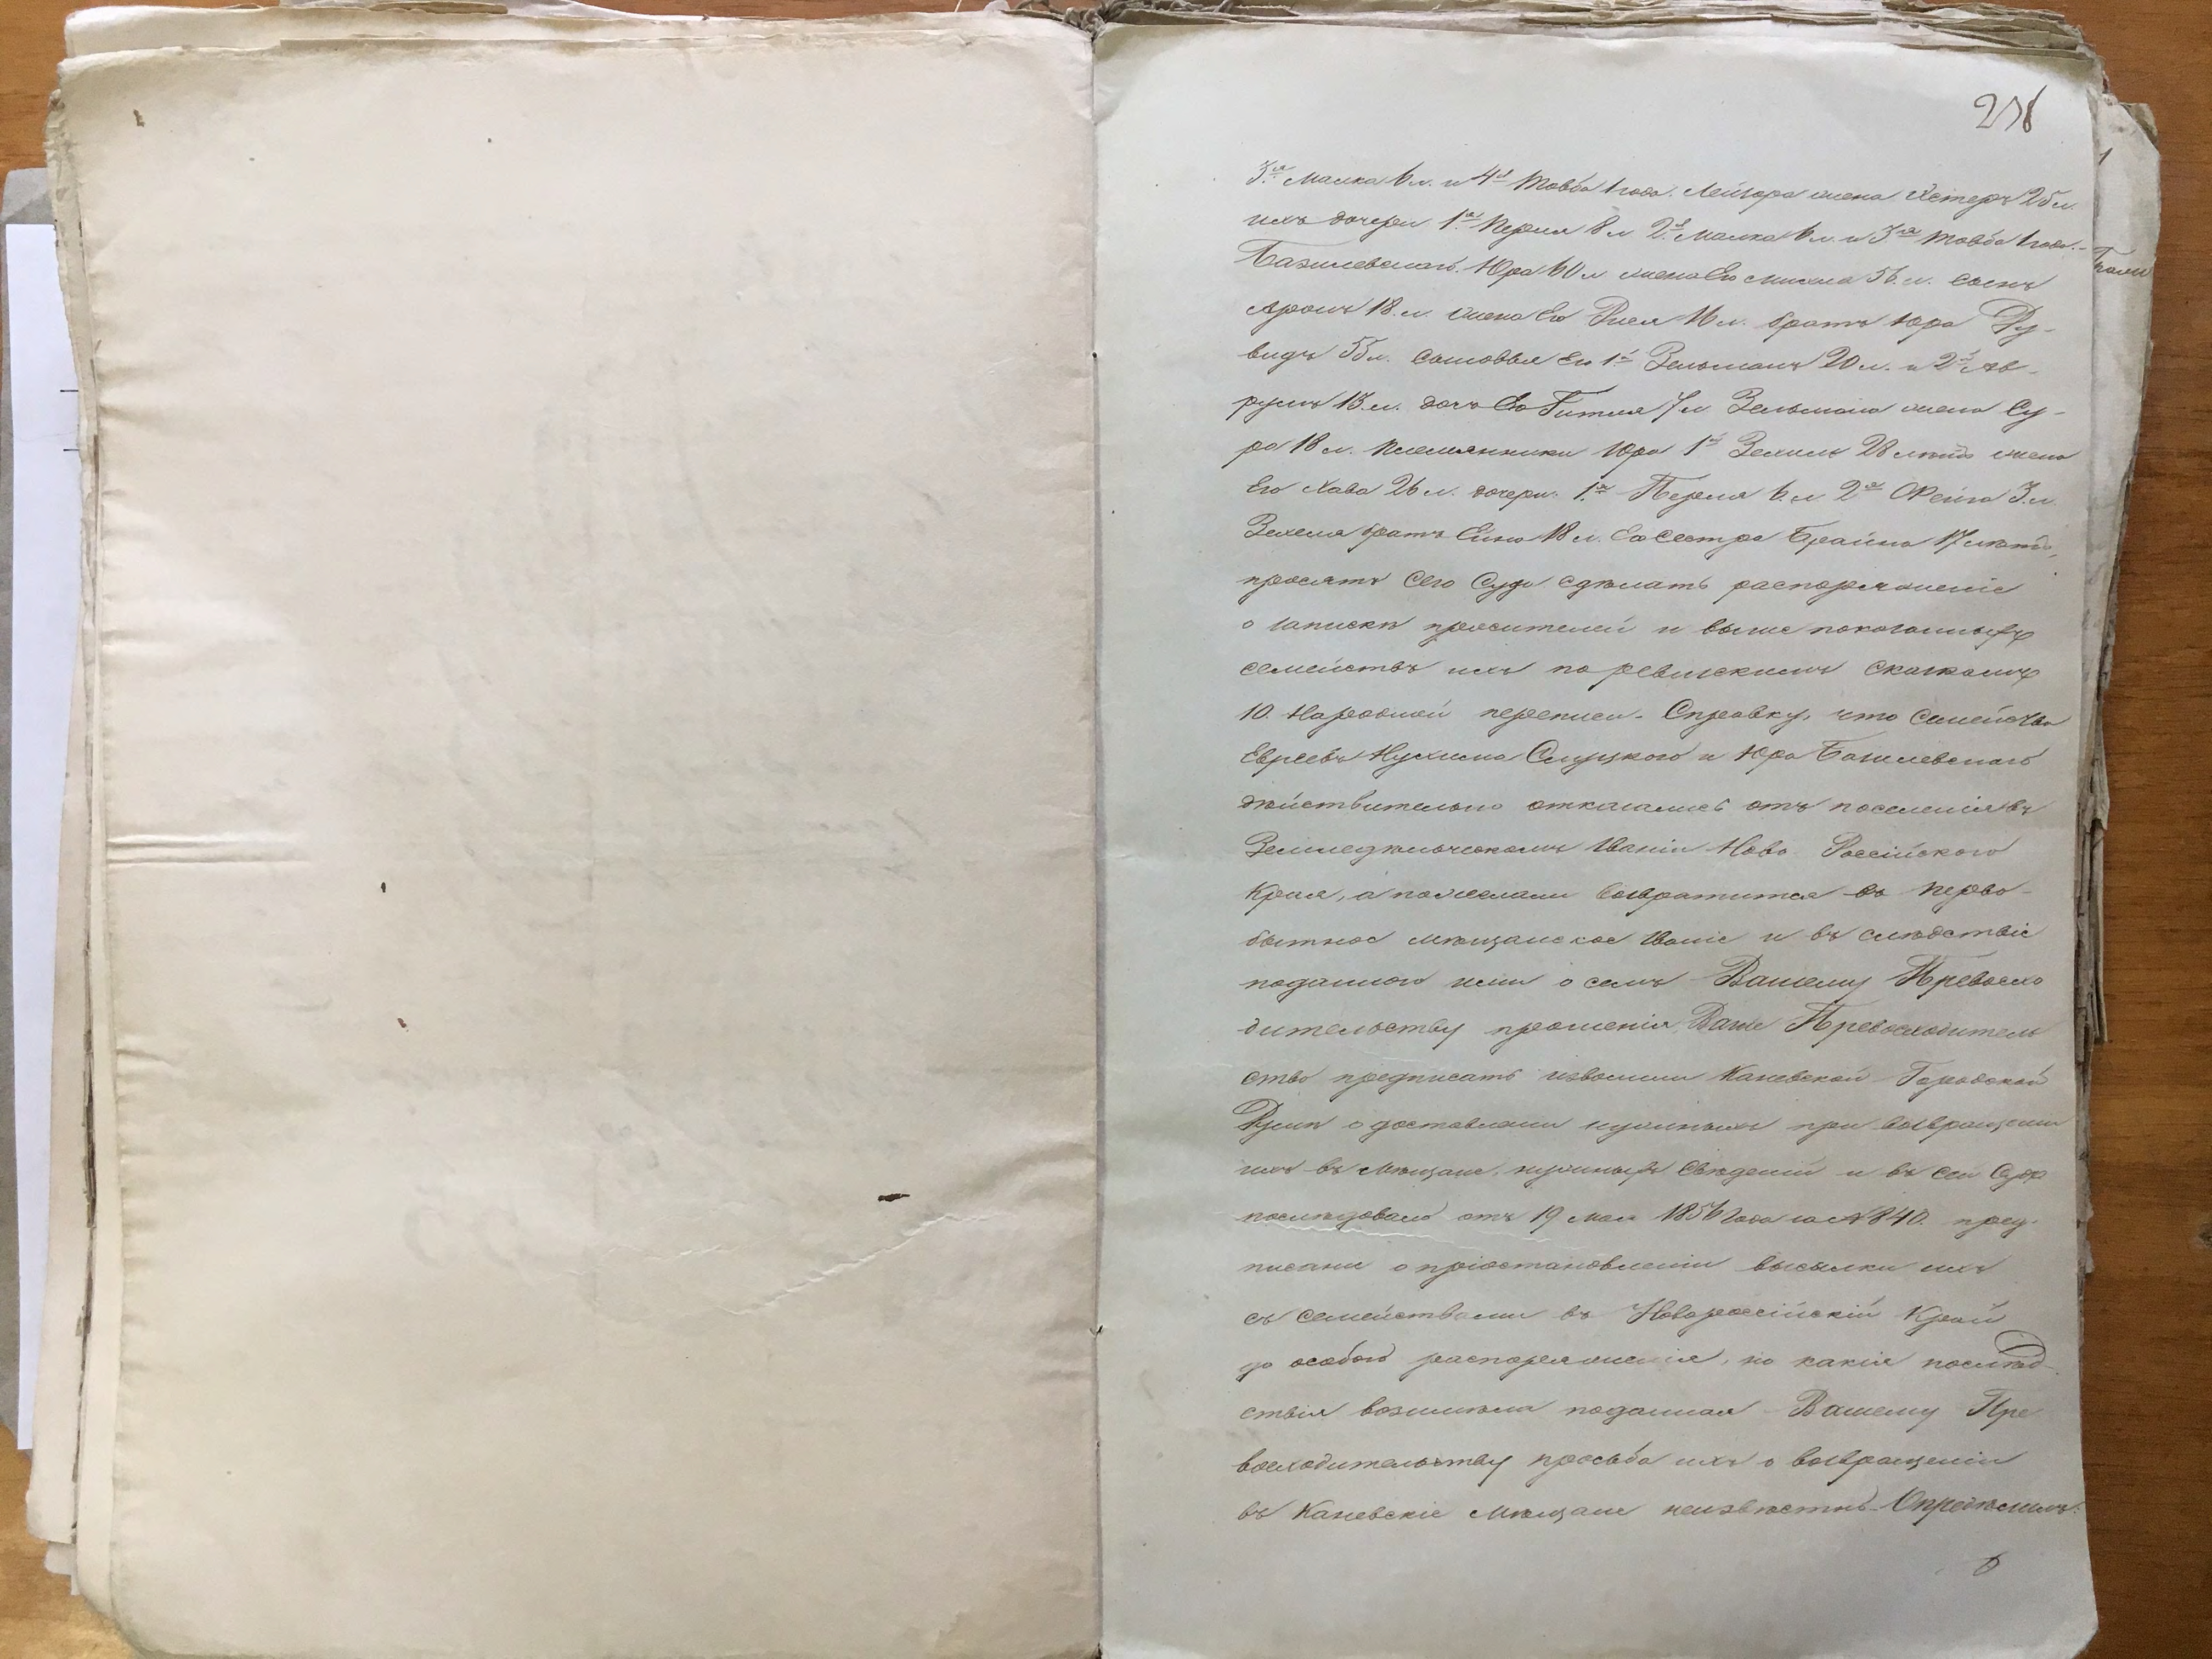 3.ья Малка 6 л. и 4я Товба 1 года. Лейзора жена Эстеръ 25 л.
ихъ дочери 1.я Перля 8 л 2.я Малка 6 л. и 3ья Товба 1 года.-
Базилевскаго. Юра 60 л жена Его Михля 56. л. сынъ
Аронъ 18. л. жена Его Рися 16 л. братъ Юра Ру-
видъ 55 л. Сыновья Его 1й Зельманъ 20 л. и 2й Ав-
румъ 13. л. дочь Его Гитля 7 л Зельмана жена Су-
ра 18 л. племянники Юра 1й Зелиль 28 лѣтъ жена
Его Хава 26 л. дочери. 1.я Перля 6. л 2я Фейга 3. л
братъ 18 л. Его Сестра Брайна 17 лѣтъ,
просятъ Сего Суда сдѣлать распоряженіе
о запискѣ просителей и выше показанныхъ
семействъ ихъ по ревизскимъ сказкамъ
10. Народной переписи. Справку, что Семейства
Евреевъ Нухима Слуцкого и Юра Базилевскаго
дѣйствительно отказались отъ поселенія въ
Земледѣльческомъ званіи Ново Россійского
Края, а пожелали возвратится въ перво-
бытное мѣщанское званіе и въ слѣдствіе
поданного ими о семъ Вашему Превосхо
дительству прошенія, Ваше Превосходитель
ство предписать изволили Каневской Городской
Думѣ о доставленіи нужныхъ при возвращеніи
ихъ въ Мѣщане, нужныхъ Свѣденій и въ сей Судъ
послѣдовало отъ 19 мая 1856 года за № 840. пред-
писаніе о пріостановленіи высылки ихъ
съ семействами въ Новороссійскій Край
до особого распоряженія, но какія послѣд-
ствія возимѣла поданная Вашему Пре
восходительству просьба ихъ о возвращеніи
въ Каневскіе Мѣщане неизвѣстно. Опредѣлилъ: